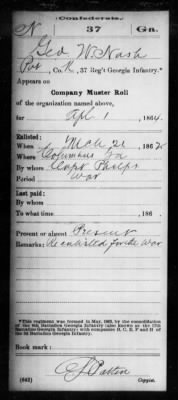 Confederate.
N 37 Ga.
Geo W. Nash
Pvt, Co. K, 37 Reg't Georgia Infantry.*
Appears on
Company Muster Roll
of the organization named above,
for Apl 1, 1864.
Enlisted:
When Mch 21, 1862
Where Columbus Ga
By whom Capt Phelps
Period War
Last paid:
By whom
To what time , 186 .
Present or absent Present
Remarks: Reenlisted for the war
*This regiment was formed in May, 1863, by the consolidation
of the 9th Battalion Georgia Infantry (also known as the 17th
Battalion Georgia Infantry) with companies B, C, E, F and H of
the 3d Battalion Georgia Infantry.
Book mark:
Patton
(642) Copyist.